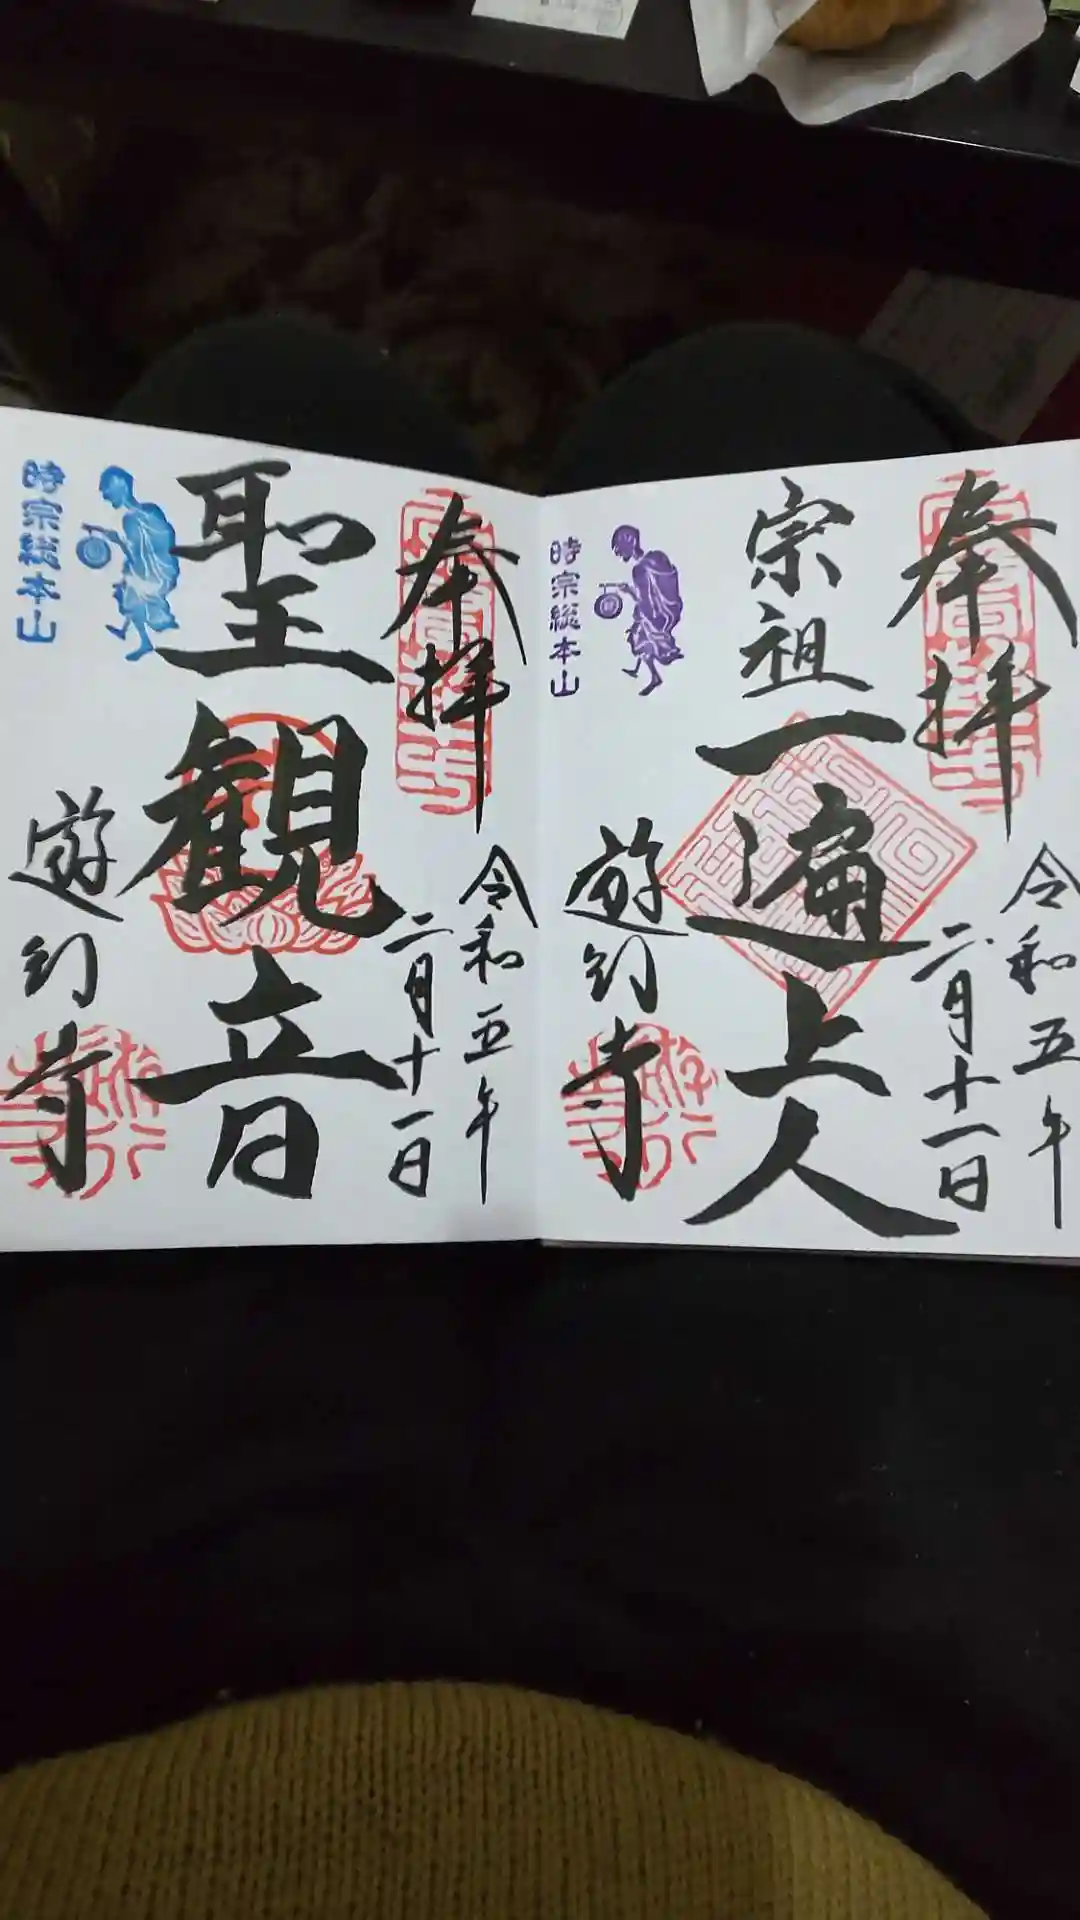 奉拝
令和五年
二月十一日
宗祖一遍上人
時宗総本山
遊行寺
奉拝
令和五年
二月十一日
聖観音
時宗総本山
遊行寺